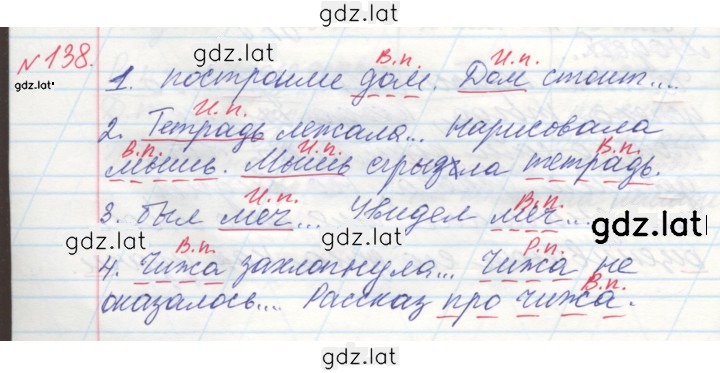 gdz.lat
№138.
В.п. И.п.
1. построили дом. Дом стоит....
gdz.lat
И.п.
2. Тетрадь лежала... Нарисовала
В.п. И.п. В.п.
мышь. Мышь сгрызла тетрадь.
И.п. В.п.
3. был меч... Увидел меч...
gdz.lat gdz.lat
В.п. Р.п.
4. Чижа захлопнула... Чижа не
В.п.
оказалось.... Рассказ про чижа.
gdz.lat